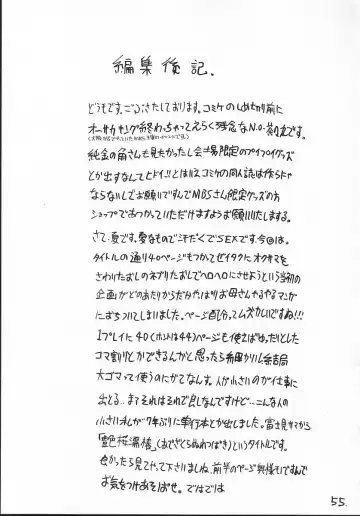 編集後記.
どうもです。ごぶさたしております。コミケのしめきり前に
オーサカキング終わっちゃってえらく残念なN.O-初のです。
純金の角さんも見たかったし会場限定のプイプイグッズ
とか出すなんてヒドイ!!とはいえコミケの同人誌は作らにゃ
ならないしでお願いですんでMBSさん限定グッズの方
ショップであつかっていただけますようお願いいたします。
さて、夏です。夏なもので汗だくでSEXです。今回は。
タイトルの通り40ページもつかってゼイタクにオクサマを
さわりたおしのネブりたおしでヘロヘロにさせようという当初の
企画がどのあたりからだみやっぱりお母さんやるやるマンガ
におちついてしまいました。ページ配分ってムズかしいですね!!!
1プレイに40(ホントは44)ページも使えばゆったりとした
コマ割りとかできるんかと思ったら
大ゴマって使うのにがてなんす。人が小さいのがイは事に
出とる… まてそれはそれで良しなんですけど…こんな人の
小さい本しが7年ぶりに単行本とか出しました。富士見サマから
「艶色桜濡椿」(あでざくらぬれつばき)というタイトルです。
よかったら見てやって下さいましね、前半のページ
お気をつけあそばせ。ではでは
55.